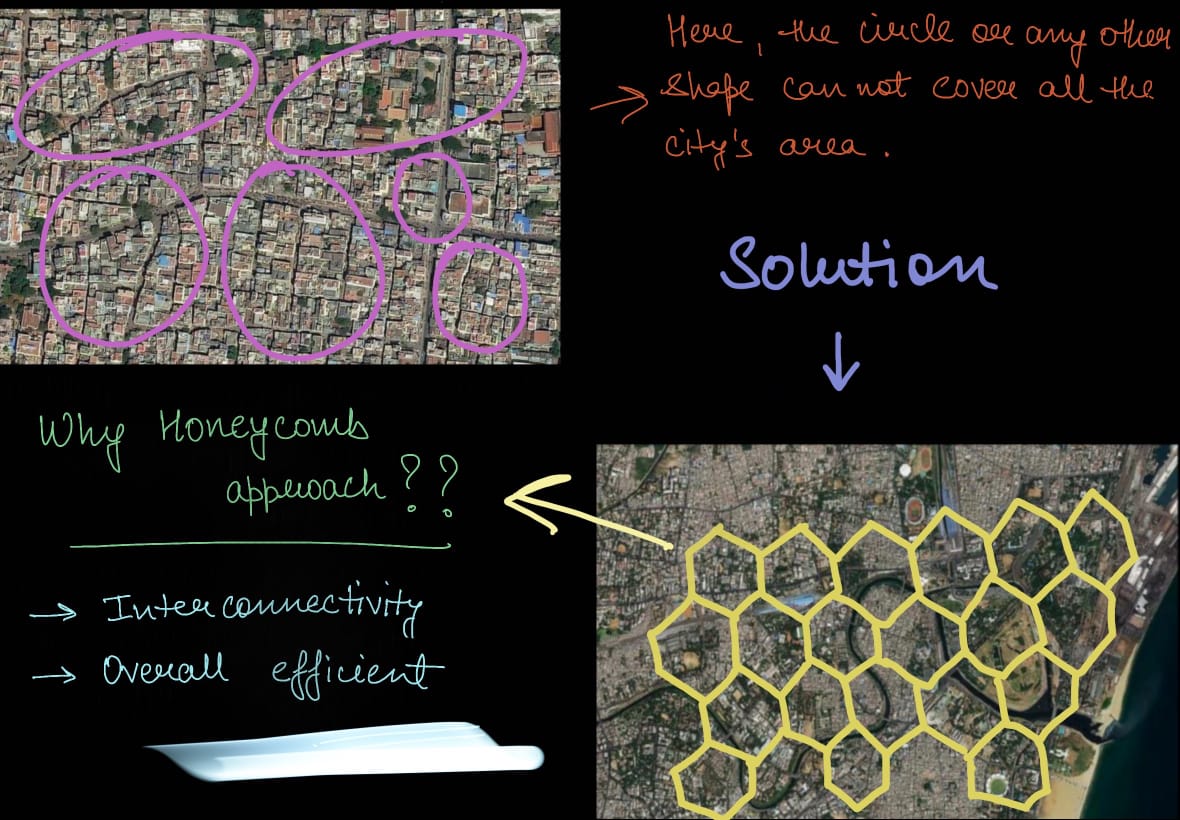 Here, the circle or any other
→ shape can not cover all the
city's area.
Solution
↓
Why Honeycomb
approach??
→ Interconnectivity
→ Overall efficient